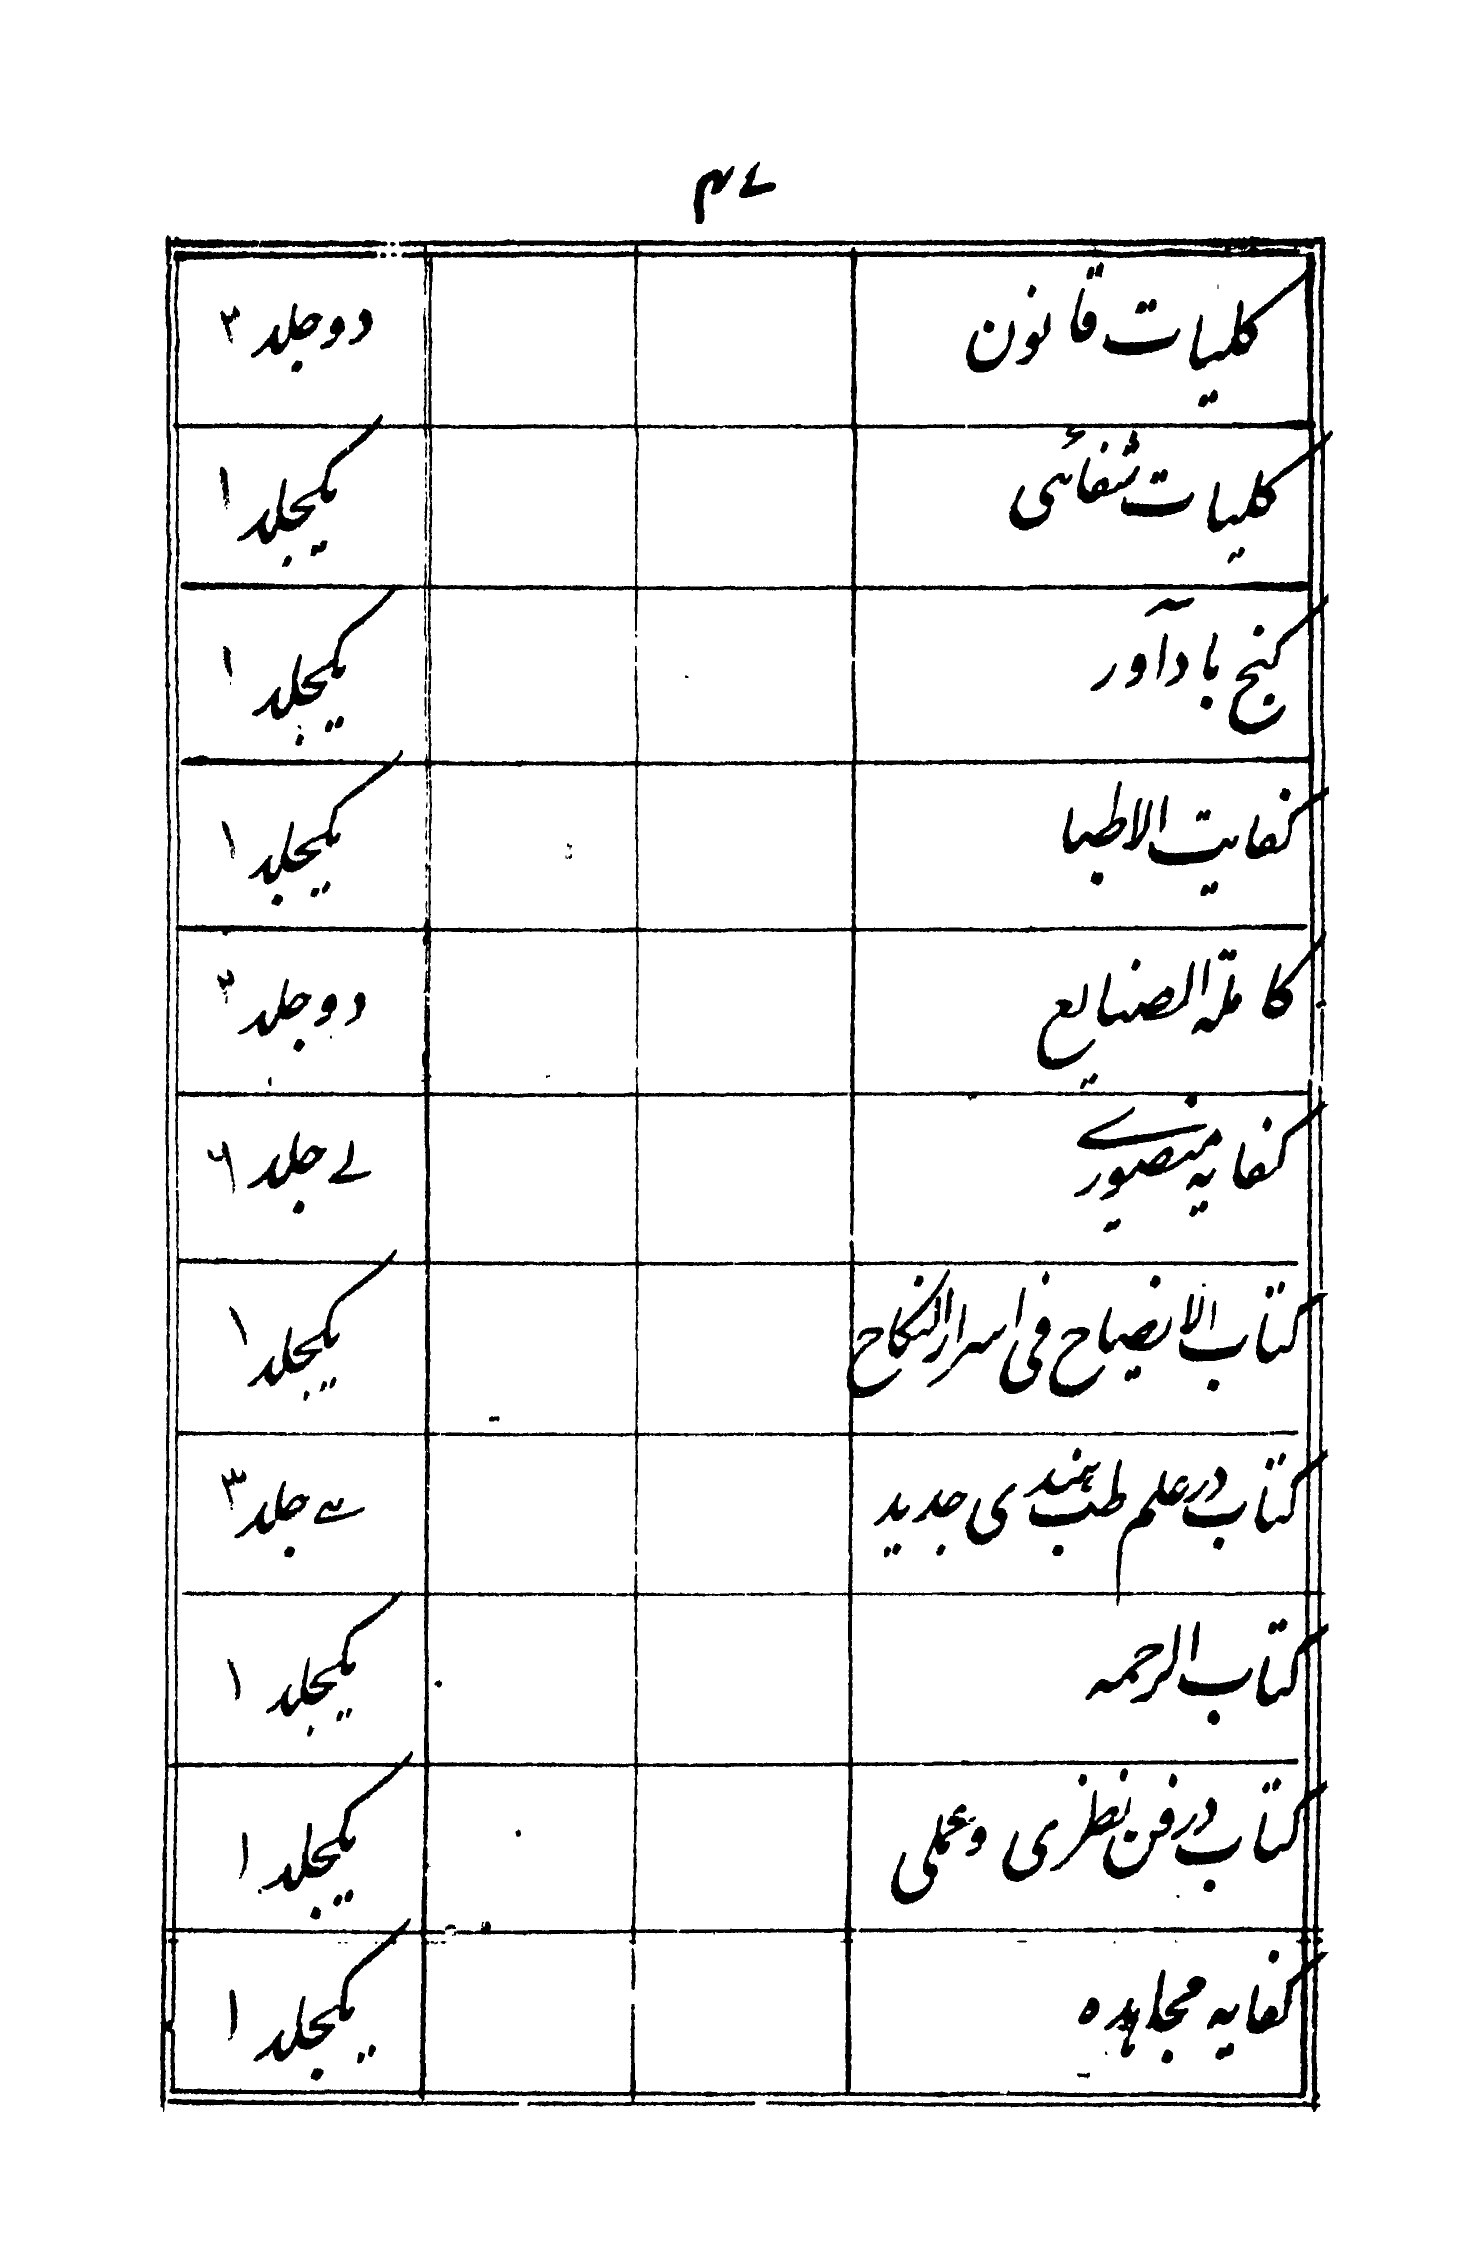 کلیات قانون دو جلد ۲
کلیات شفائی یکجلد ۱
گنج بادآور یکجلد ۱
کفایت الاطبا یکجلد ۱
کاملة الصنایع دو جلد ۲
کفایه منصوری جلد
کتاب الایضاح فی اسرار النکاح یکجلد ۱
کتاب در علم طب هندی جدید سے جلد ۳
کتاب الرحمه یکجلد ۱
کتاب در فن نظری و عملی یکجلد ۱
کفایه مجاهده یکجلد ۱